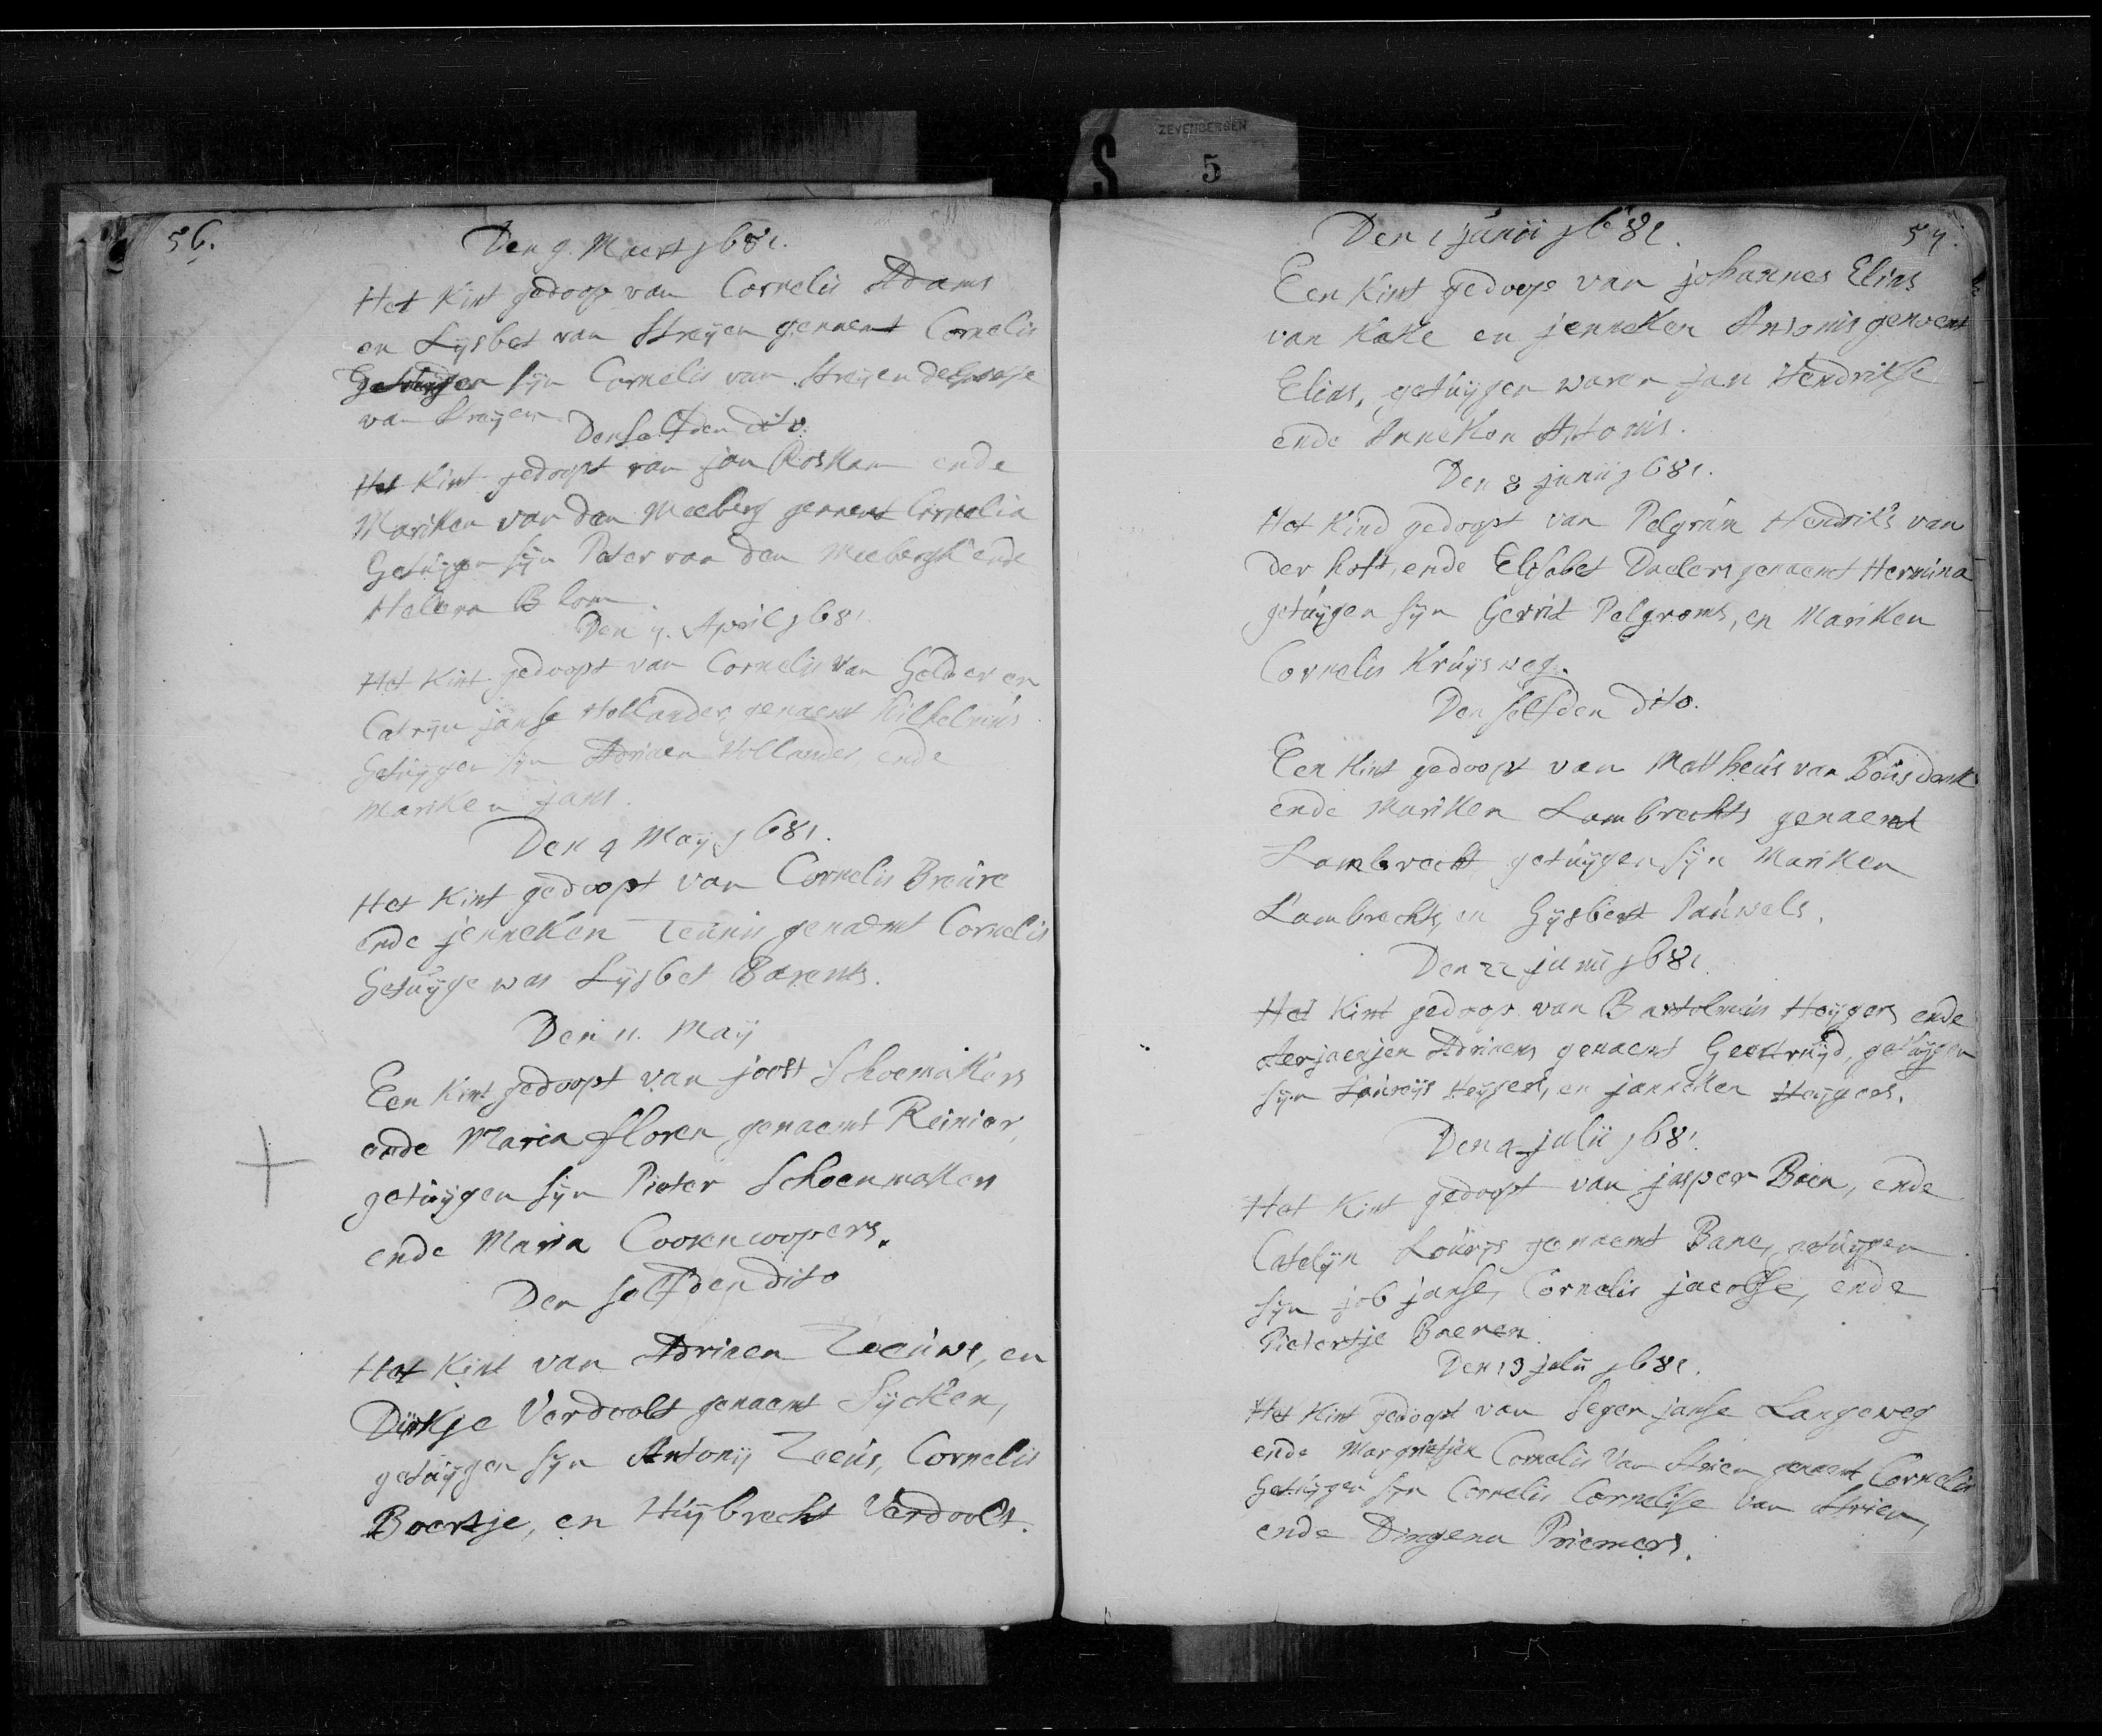 ZEVENBERGEN
S 5
56.
Den 9. Maert 1681.
Het Kint gedoop van Cornelis Adams
en Lijsbet van Strijen genaemt Cornelis
Getuijgen sijn Cornelis van Strijen de
van Strijen
Den selfden dito.
Het Kint gedoopt van jan Roskam ende
Mariken van den Meeberg genaemt Cornelia
Getuijgen sijn Peter van den Meebergh ende
Helena Blom.
Den 7. April 1681.
Het Kint gedoopt van Cornelis van Gelder en
Catrijn janse Hollander, genaemt Wilhelmus
Getuijgen sijn Adriaen Hollander, ende
Mariken jans.
Den 4 Maij 1681.
Het Kint gedoopt van Cornelis Breure
ende jenneken Teunis genaemt Cornelis
Getuijge was Lijsbet Barents.
Den 11. Maij
Een Kint gedoopt van joost Schoemakers
ende Maria Floren, genaemt Reinier,
getuijgen sijn Pieter Schoenmakers
ende Maria Coorencoopers.
Den selfden dito
Het Kint van Adriaen Zeeuwe, en
Dirkje Verdoolt genaemt Sijcken,
getuijgen sijn Antonij Zeeus, Cornelis
Boertje, en Huijbrecht Verdoolt.
57.
Den 1 junii 1681.
Een Kint gedoopt van johannes Elias
van Kake en jenneken Antonis genoemt
Elias, getuijgen waren jan Hendrikse
ende Anneken Antonis.
Den 8 junii 1681.
Het Kind gedoopt van Pelgrim Hendriks van
der hoft, ende Elisabet Daelers genaemt Hermina
getuijgen sijn Gerrit Pelgroms, en Mariken
Cornelis Kruijsweg.
Den selfden dito.
Een Kint gedoopt van Mattheus van Bousdonk
ende Mariken Lambrechts genaemt
Lambrecht getuijgen sijn Mariken
Lambrechts, en Gijsbert Pauwels.
Den 22 junii 1681.
Het Kint gedoop van Bartolmeus Heijgers ende
Aerjaentjen Adriaens genaemt Geertruijd, getuijgen
sijn Louwijs Heijgers, en janneken Heijgers.
Den julii 1681.
Het Kint gedoopt van jasper Baen, ende
Catelijn Lourijs genaemt Bane, getuijgen
sijn job janse, Cornelis jacobse, ende
Pietertje Baenen.
Den 13 julii 1681.
Het Kint gedoopt van Seger janse Langeweg
ende Margrietjen Cornelis Van Strien, genaemt Cornelis
Getuijgen sijn Cornelis Cornelisse van Strien,
ende Dingena Priemers.